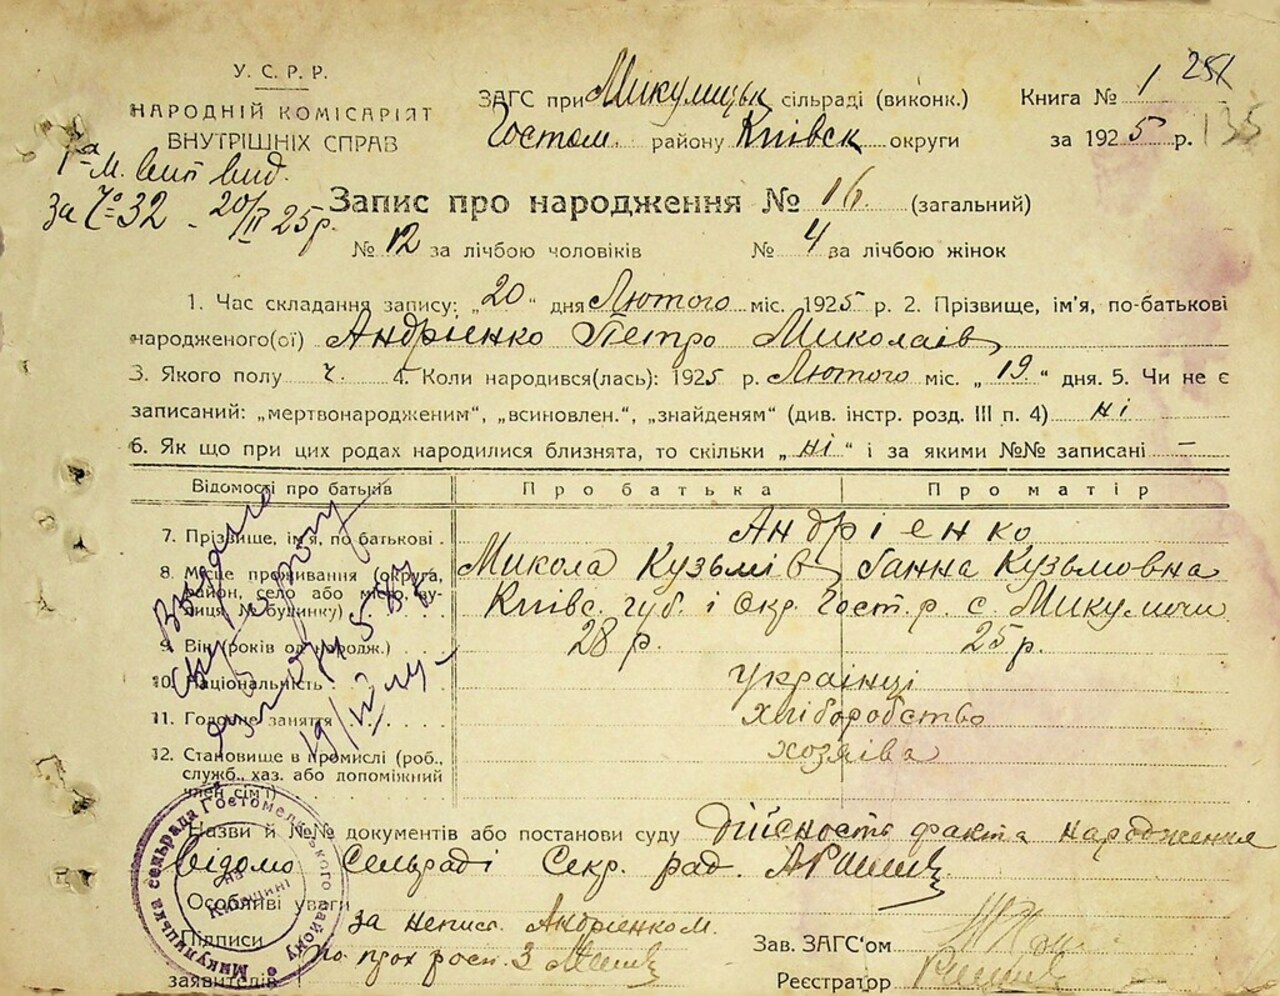 У. С. Р. Р.
НАРОДНІЙ КОМІСАРІЯТ
ВНУТРІШНІХ СПРАВ
ЗАГС при Микулицьк сільраді (виконк.)
Гостом. району Київск округи
Книга № 1 251
за 1925 р. 135
1а М. вип вид.
За № 32 - 20/II 25 р.
Запис про народження № 16. (загальний)
№ 12 за лічбою чоловіків № 4 за лічбою жінок
1. Час складання запису: „20“ дня Лютого міс. 1925 р. 2. Прізвище, ім'я, по-батькові
народженого(ої) Андрієнко Петро Миколаїв
3. Якого полу ч. 4. Коли народився(лась): 1925 р. Лютого міс. „19“ дня. 5. Чи не є
записаний: „мертвонародженим“, „всиновлен.“, „знайденям“ (див. інстр. розд. III п. 4) ні
6. Як що при цих родах народилися близнята, то скільки „ні“ і за якими №№ записані —
Відомості про батьків Про батька Про матір
7. Прізвище, ім'я, по батькові . Андрієнко
Микола Кузьмів Ганна Кузьмовна
8. Місце проживання (округа, район, село або місто, вулиця, № будинку) Київс. губ. і Окр. Гост. р. с. Микуличи
9. Вік (років од народж.) 28 р. 25 р.
10. Національність Українці
11. Головне заняття хліборобство
12. Становище в промислі (роб., служб., хаз. або допоміжний член сім'ї) хозяїва
Видано
19/
Назви й №№ документів або постанови суду Дійсность факта народження
відомо Сельраді Секр. рад.
Особливі уваги
Підписи за непис. Андрієнко М.
заявителів по прох росп. З
Зав. ЗАГС'ом
Реєстратор
Микулицька сельрада Гостомельського району
на Київщині